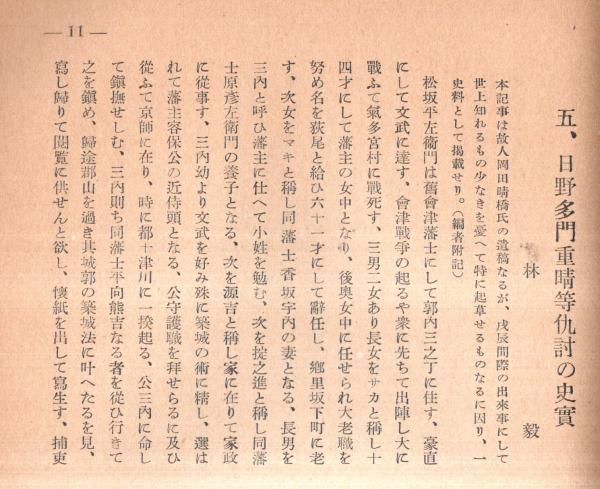 — 11 —
五、日野多門重晴等仇討の史實
林　毅
本記事は故人岡田晴橋氏の遺稿なるが、戊辰間際の出来事にして
世上知れるもの少なきを憂へて特に起草せるものなるに因り、一
史料として掲載せり。（編者附記）
松坂平左衞門は舊會津藩士にして郭内三之丁に住す、豪直
にして文武に達す、會津戰爭の起るや衆に先ちて出陣し大に
戰ふて氣多宮村に戰死す、三男二女あり長女をサカと稱し十
四才にして藩主の女中となり、後奥女中に任せられ大老職を
努め名を荻尾と給ひ六十一才にして辭任し、郷里坂下町に老
す、次女をマキと稱し同藩士香坂宇内の妻となる、長男を
三内と呼ひ藩主に仕へて小姓を勉む、次を掟之進と稱し同藩
士原彦左衞門の養子となる、次を源吉と稱し家に在りて家政
に從事す、三内幼より文武を好み殊に築城の術に精し、選は
れて藩主容保公の近侍頭となる、公守護職を拜せらるに及ひ
從ふて京師に在り、時に都十津川に一揆起る、公三内に命し
て鎭撫せしむ、三内則ち同藩士平向熊吉なる者を從ひ行きて
之を鎭め、歸途郡山を過き其城郭の築城法に叶へたるを見、
寫し歸りて閲覧に供せんと欲し、懷紙を出して寫生す、捕吏